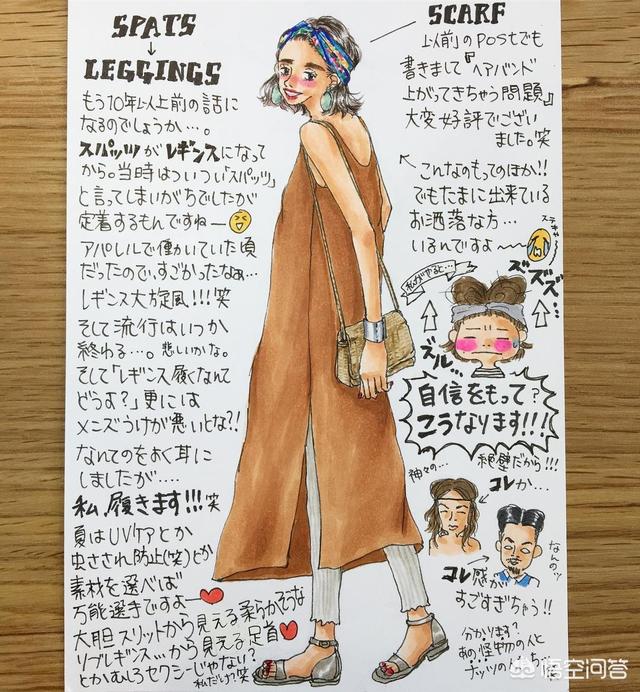 SPATS
↓
LEGGINGS
もう10年以上前の話に
なるのでしょうか…。
スパッツがレギンスになって
から。当時はついつい「スパッツ」
と言ってしまいがちでしたが
定着するもんですねー
アパレルで働いていた頃
だったので、すごかったなぁ…
レギンス大旋風!!!笑
そして流行はいつか
終わる…。悲しいかな。
そして「レギンス履くなんて
どうよ?」更には
メンズうけが悪いとな?!
なんてのをよく耳に
しましたが…
私、履きます!!!笑
夏はUVケアとか
虫さされ防止(笑)とか
素材を選べば
万能選手ですよー
大胆スリットから見える柔らかそうな
リブレギンス…から見える足首
とかむしろセクシーじゃない?
私だけ?笑
SCARF
以前のpostでも
書きまして『ヘアバンド
上がってきちゃう問題』
大変好評でござい
ました。笑
こんなのもってのほか!!
でもたまに出来ている
お洒落な方…
いるんですよ
ステキ
ズズズ…
私がやると…
ズル…
自信をもって?
こうなります!!!
絶壁だから!!!
神々の…
コレか…
なんのッ
コレ感が
すごすぎちゃう!!
分かります?
あの怪物の人と
悟空问答